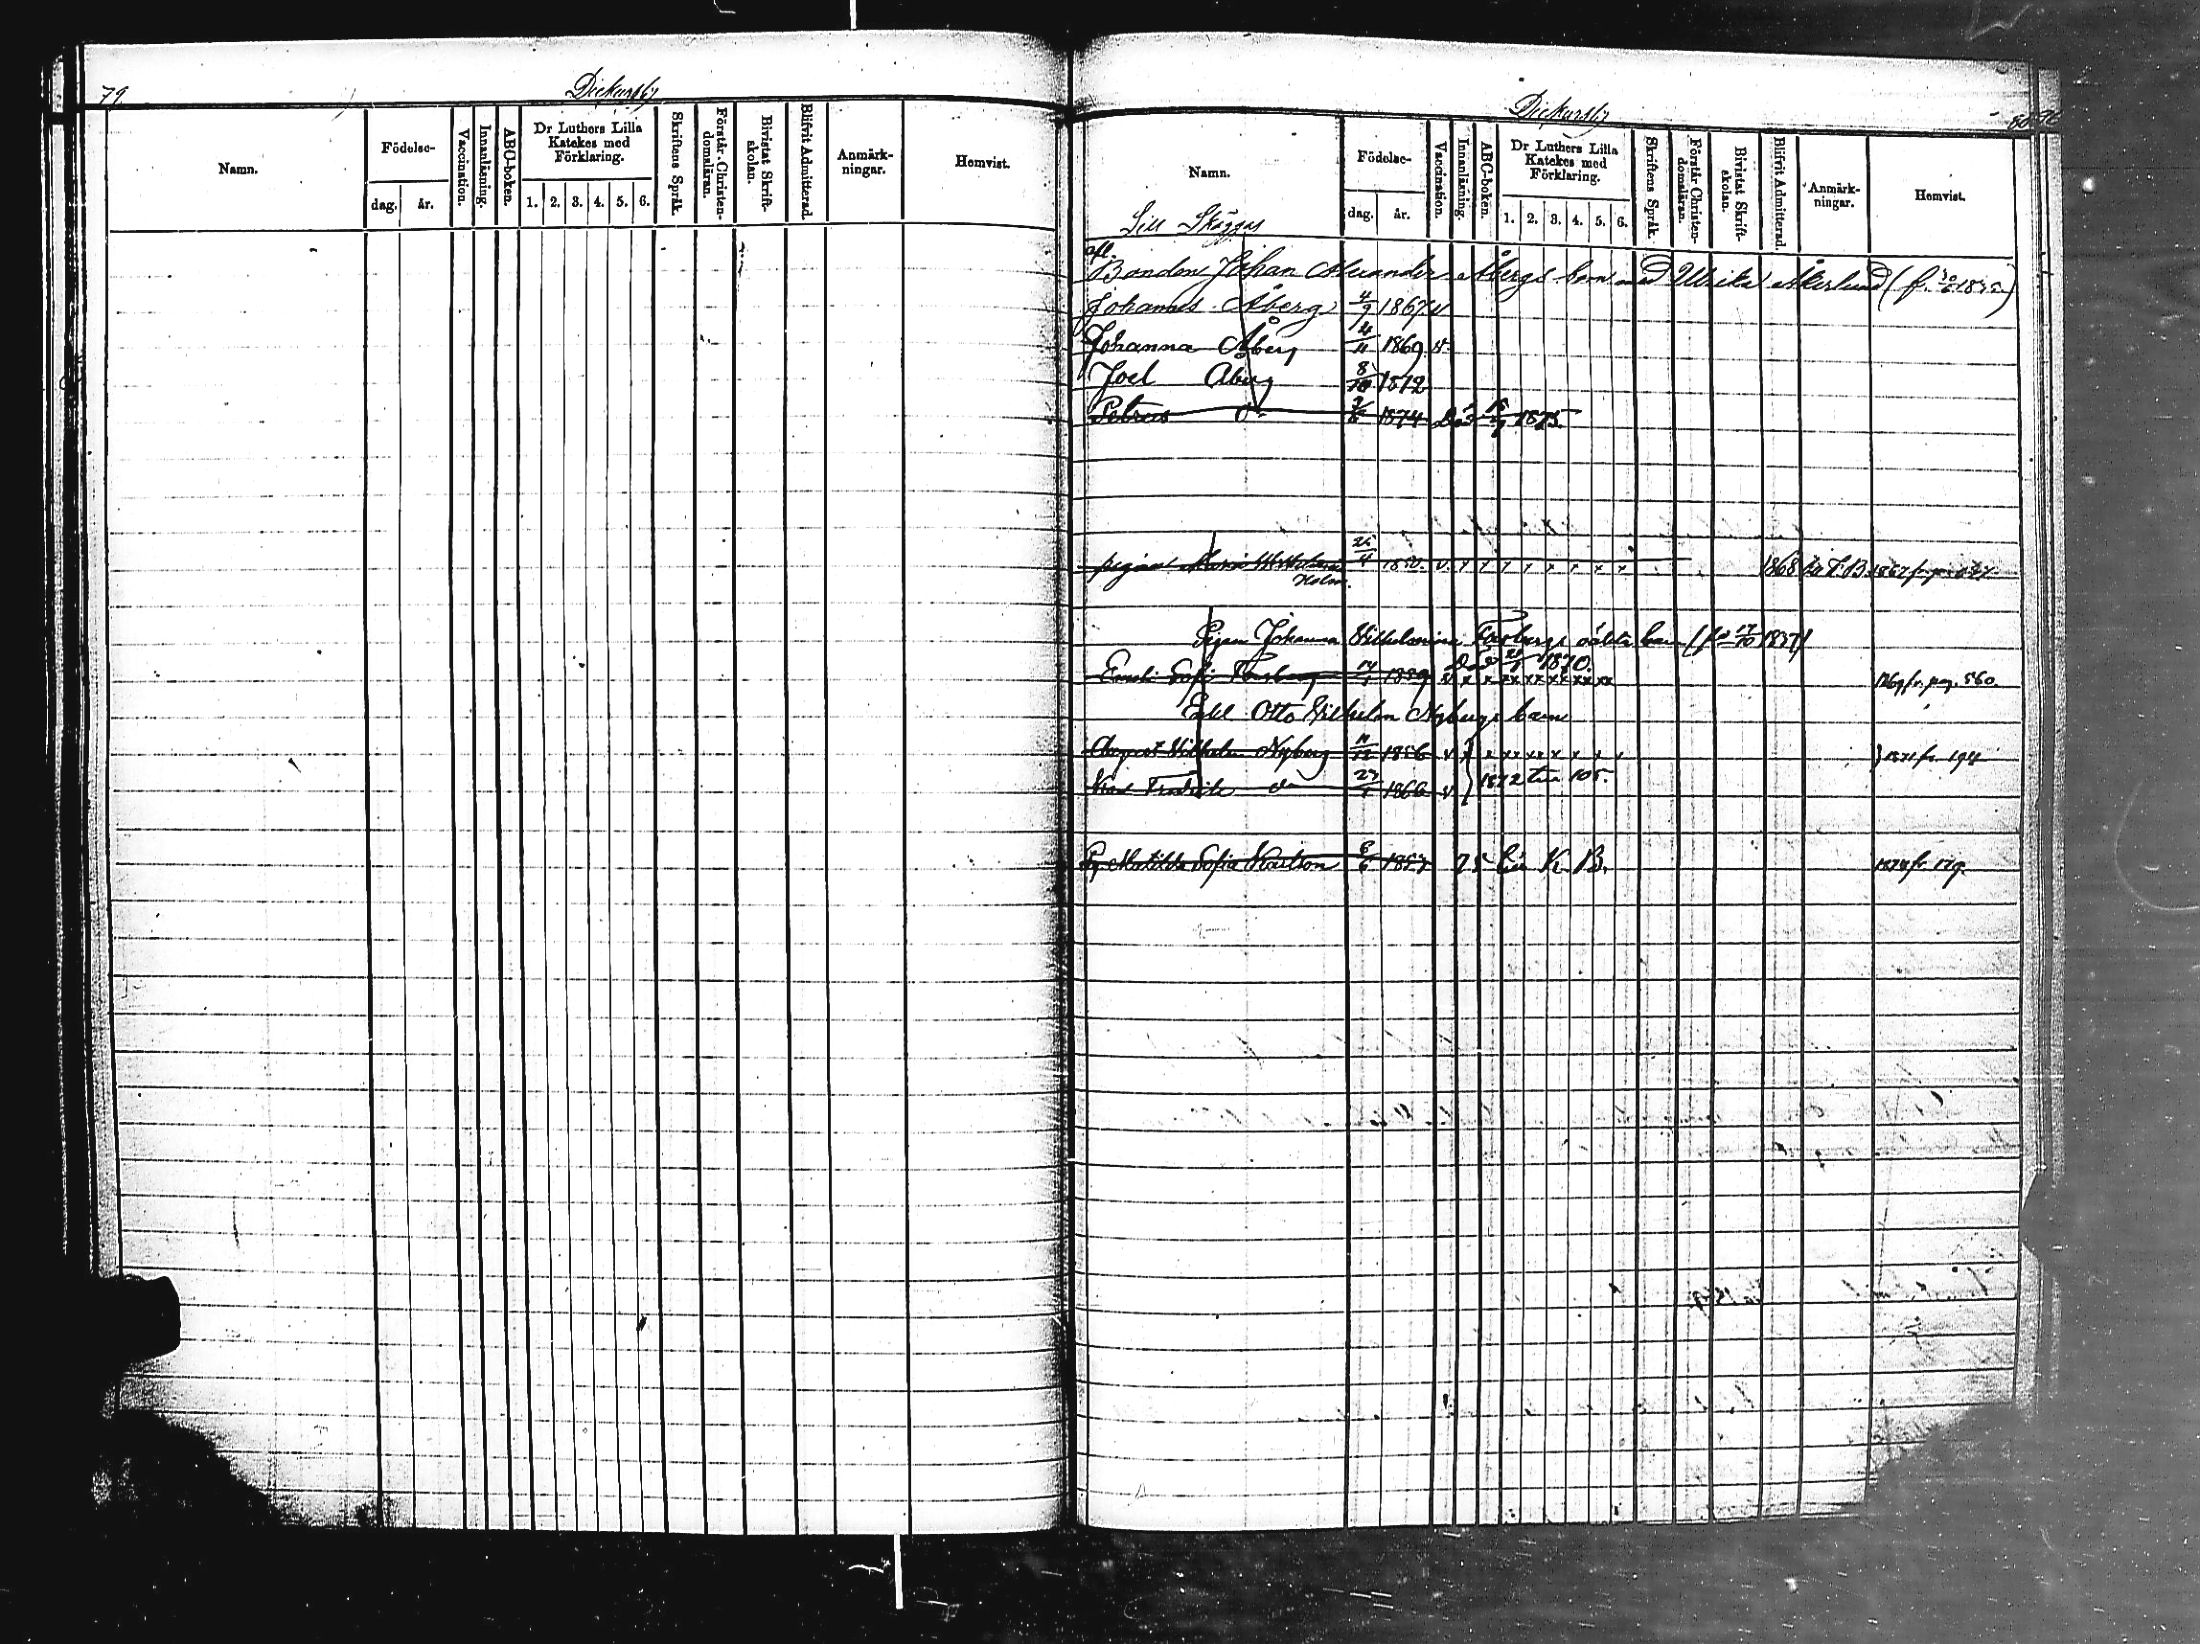 79
Dickursby
Namn.
Födelse-
dag.
år.
Vaccination.
Innanläsning.
ABC-boken.
Dr Luthers Lilla
Katekes med
Förklaring.
1. 2. 3. 4. 5. 6.
Skriftens Språk.
Förstår Christen-
domsläran.
Bivistat Skrift-
skolan.
Blifvit Admitterad.
Anmärk-
ningar.
Hemvist.
Dickursby
80
Namn.
Födelse-
dag.
år.
Vaccination.
Innanläsning.
ABC-boken.
Dr Luthers Lilla
Katekes med
Förklaring.
1. 2. 3. 4. 5. 6.
Skriftens Språk.
Förstår Christen-
domsläran.
Bivistat Skrift-
skolan.
Blifvit Admitterad.
Anmärk-
ningar.
Hemvist.
Lill Skäggas
afl.
Bonden Johan Alexander Åbergs barn med Ulrika Åkerlund
Johannes Åberg 4/9 1867 v
Johanna Åberg 4/11 1869 v.
Joel Åberg 8/10 1872
Petrus do 1874 Död 1875.
pigan Maria 25/4 1850. v. x x x x x x x x 1868
Holm.
Pigan Johanna Wilhelmina Forsbergs oäkta barn (f. 17/10 1837)
Död 1870.
Emeli Sofi Forsberg 1859 v x x xx xx xx xx xx 1869 fr. pag. 560.
Enkl. Otto Wilhelm Nybergs barn
August Wilhelm Nyberg 11/12 1856 v x x xx xx x x x x } 1871 fr. 194
Karl Fredrik do 27/1 1866 v } 1872 till 105.
Pig. Matilda Sofia Karlson 6/6 1857 75 K. B. 1874 fr. 179.